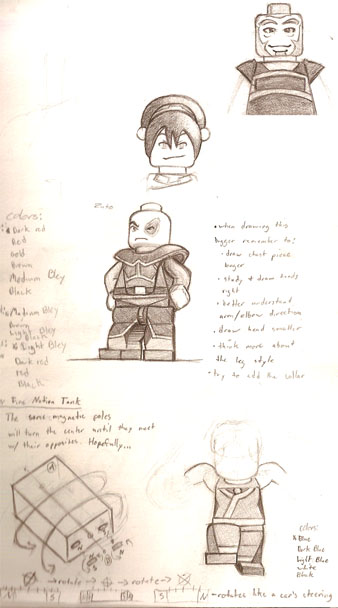 Zuko
colors:
Dark red
Red
Gold
Brown
Medium Bley
Black
Medium Bley
Brown
Light Bley
Black
Light Bley
Dark red
red
Black
• when drawing this
bigger remember to:
• draw chest piece
bigger
• study & draw hands
right
• better understand
arm/elbow direction
• draw head smaller
• think more about
the leg style
• try to add the collar
Fire Nation Tank
The same magnetic poles
will turn the center until they meet
w/ their opposites. Hopefully...
colors
Blue
Dark Blue
Light Blue
white
Black
→rotate→ →rotate→
N S N S N -rotates like a car's steering